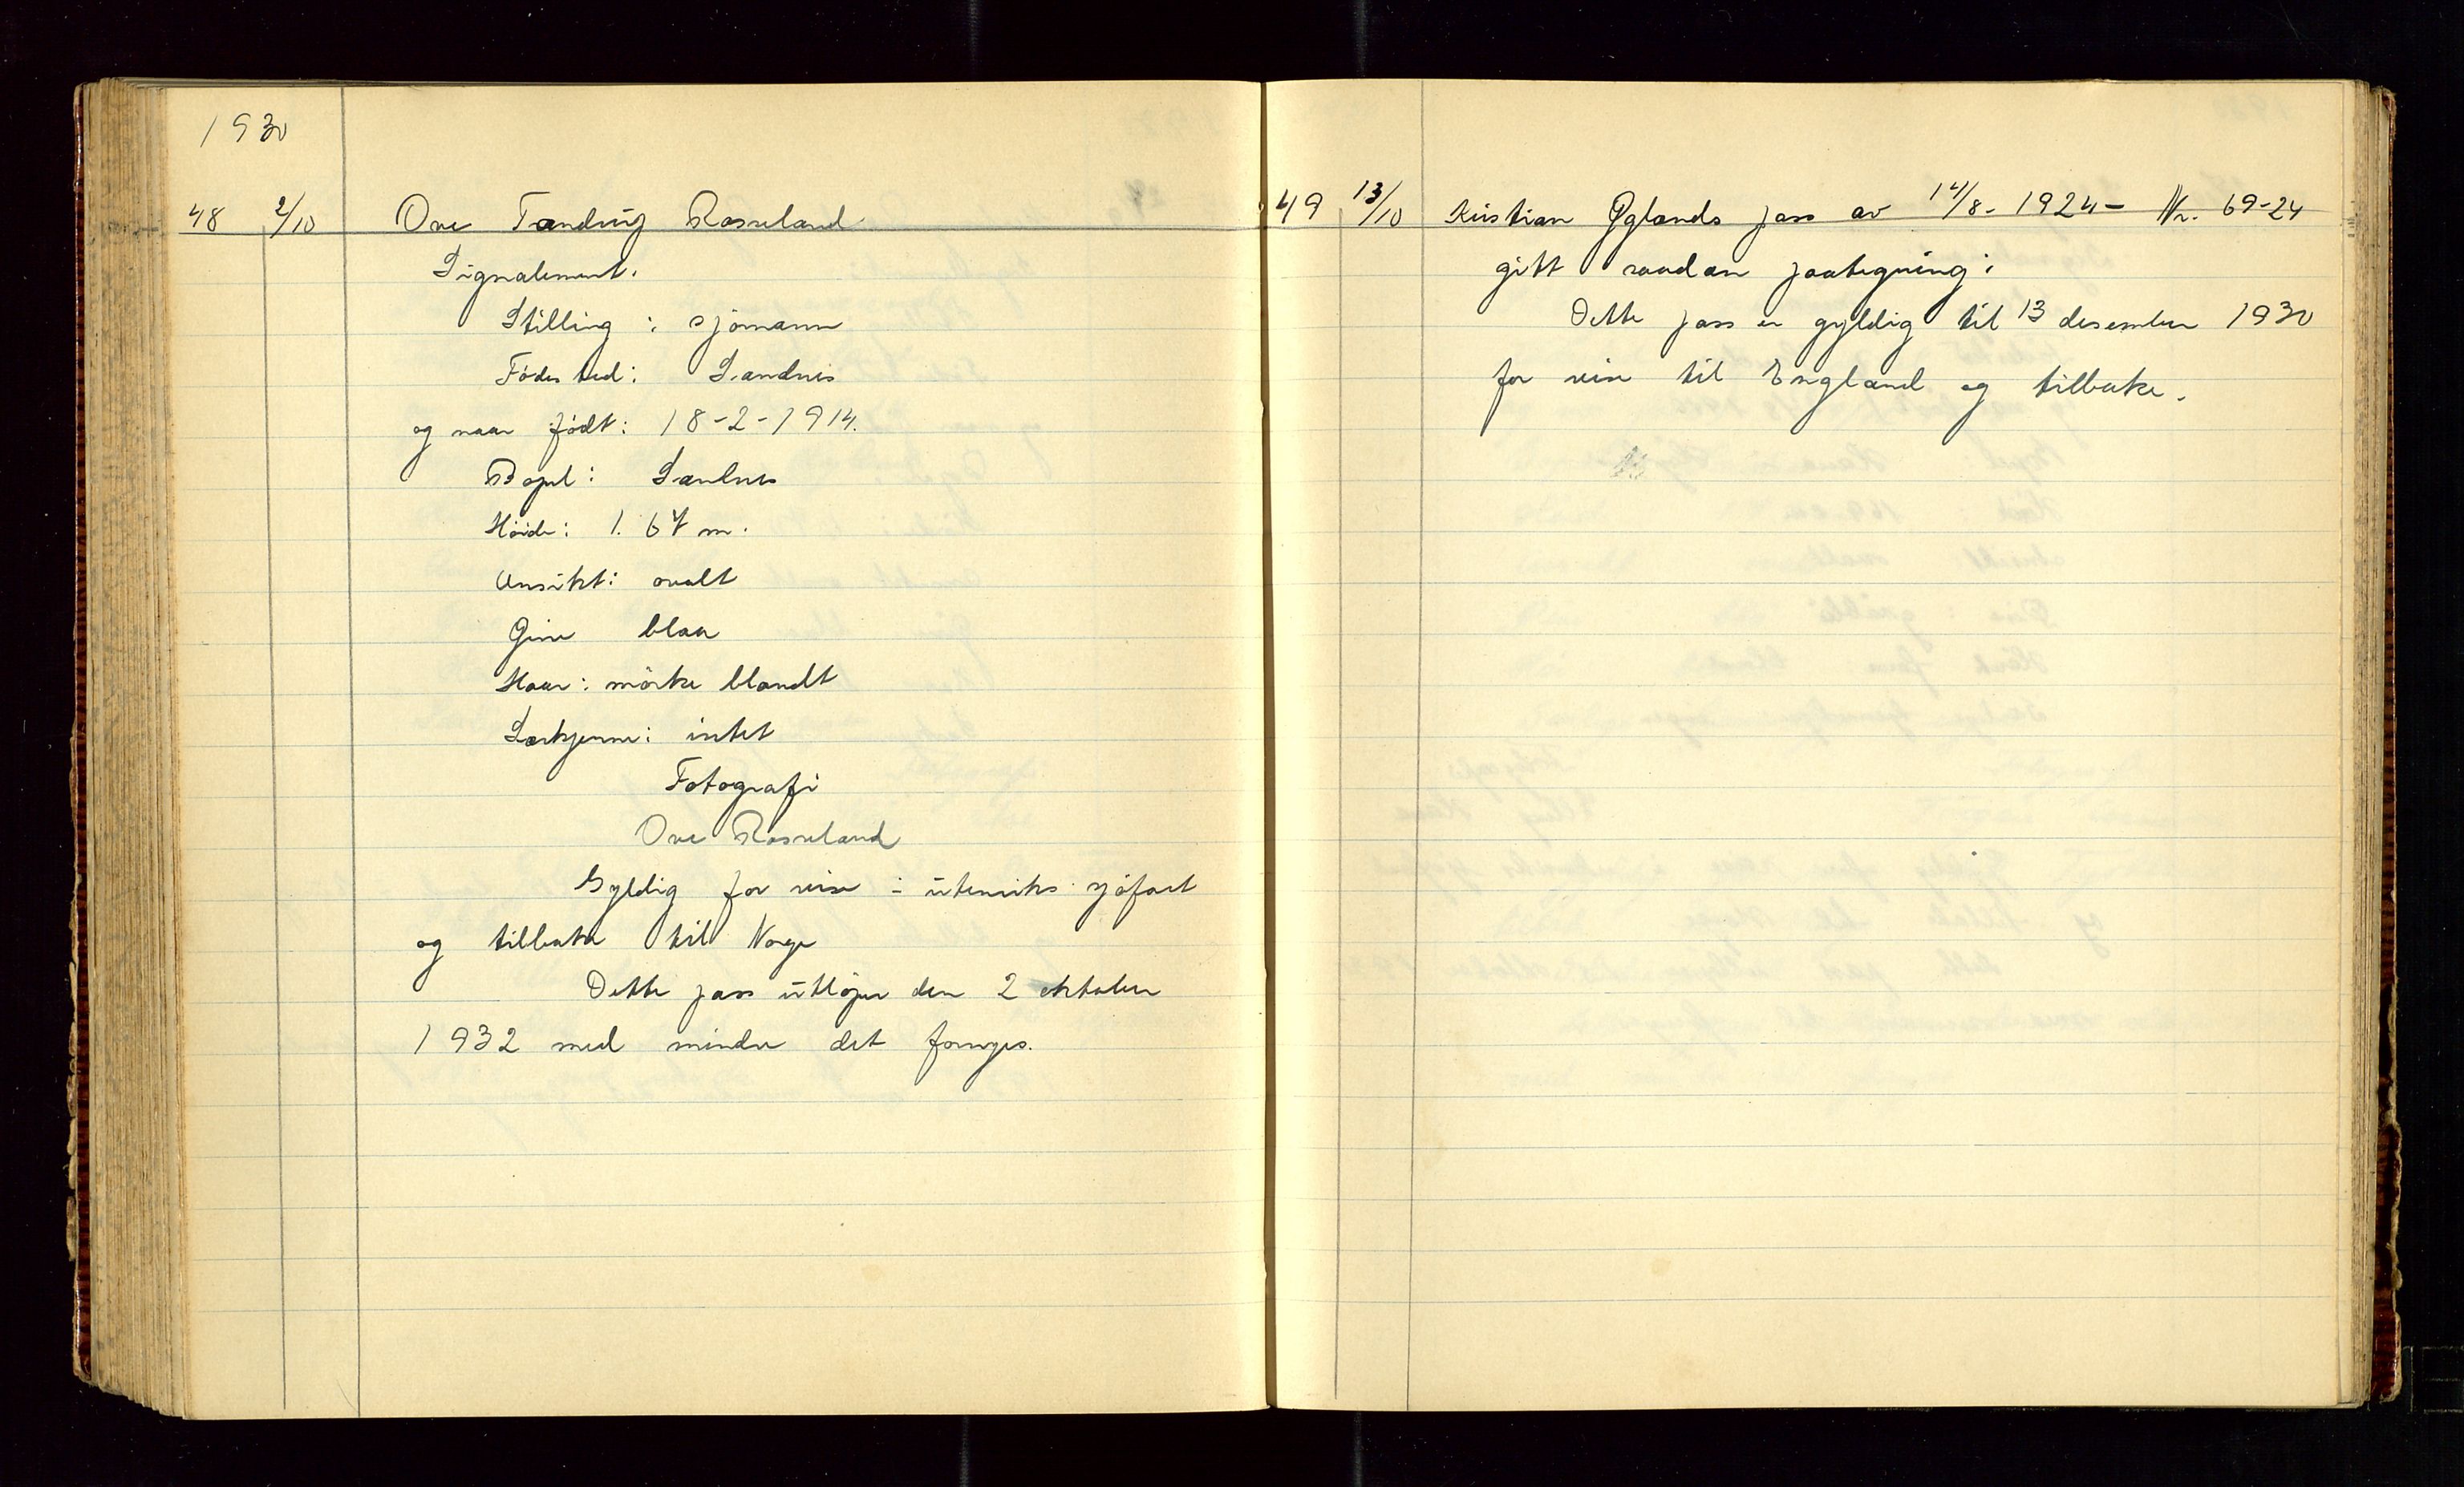 1930
48 2/10 Ove Tanding Rosseland
Signalement.
Stilling : sjömann
Födested: Sandnes
og naar födt: 18-2-1914.
Bopel: Sandnes
Höide: 1.67 m.
Ansikt: ovalt
Öine blaa
Haar: mörke blondt
Særkjenne: intet
Fotografi
Ove Rosseland
Gyldig for reise i utenriks sjöfart
og tilbake til Norge
Dette pass utlöper den 2 oktober
1932 med mindre det fornyes.
49 13/10 Kristian Öglands pass av 14/8- 1924- Nr. 69-24
gitt saadan paategning:
Dette pass er gyldig til 13 desember 1930
for reise til England og tilbake.